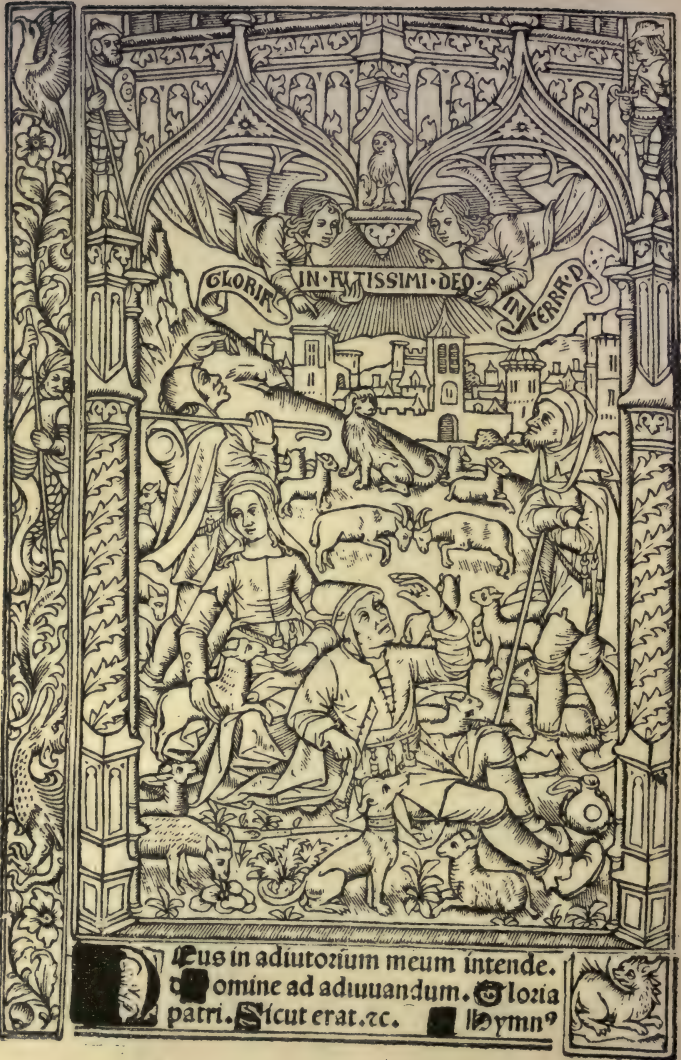 GLORIA IN·ALTISSIMI·DEO·E IN TERRA·D
Deus in adiutorium meum intende.
domine ad adiuuandum. Gloria
patri. Sicut erat.⁊c. Hymnꝰ